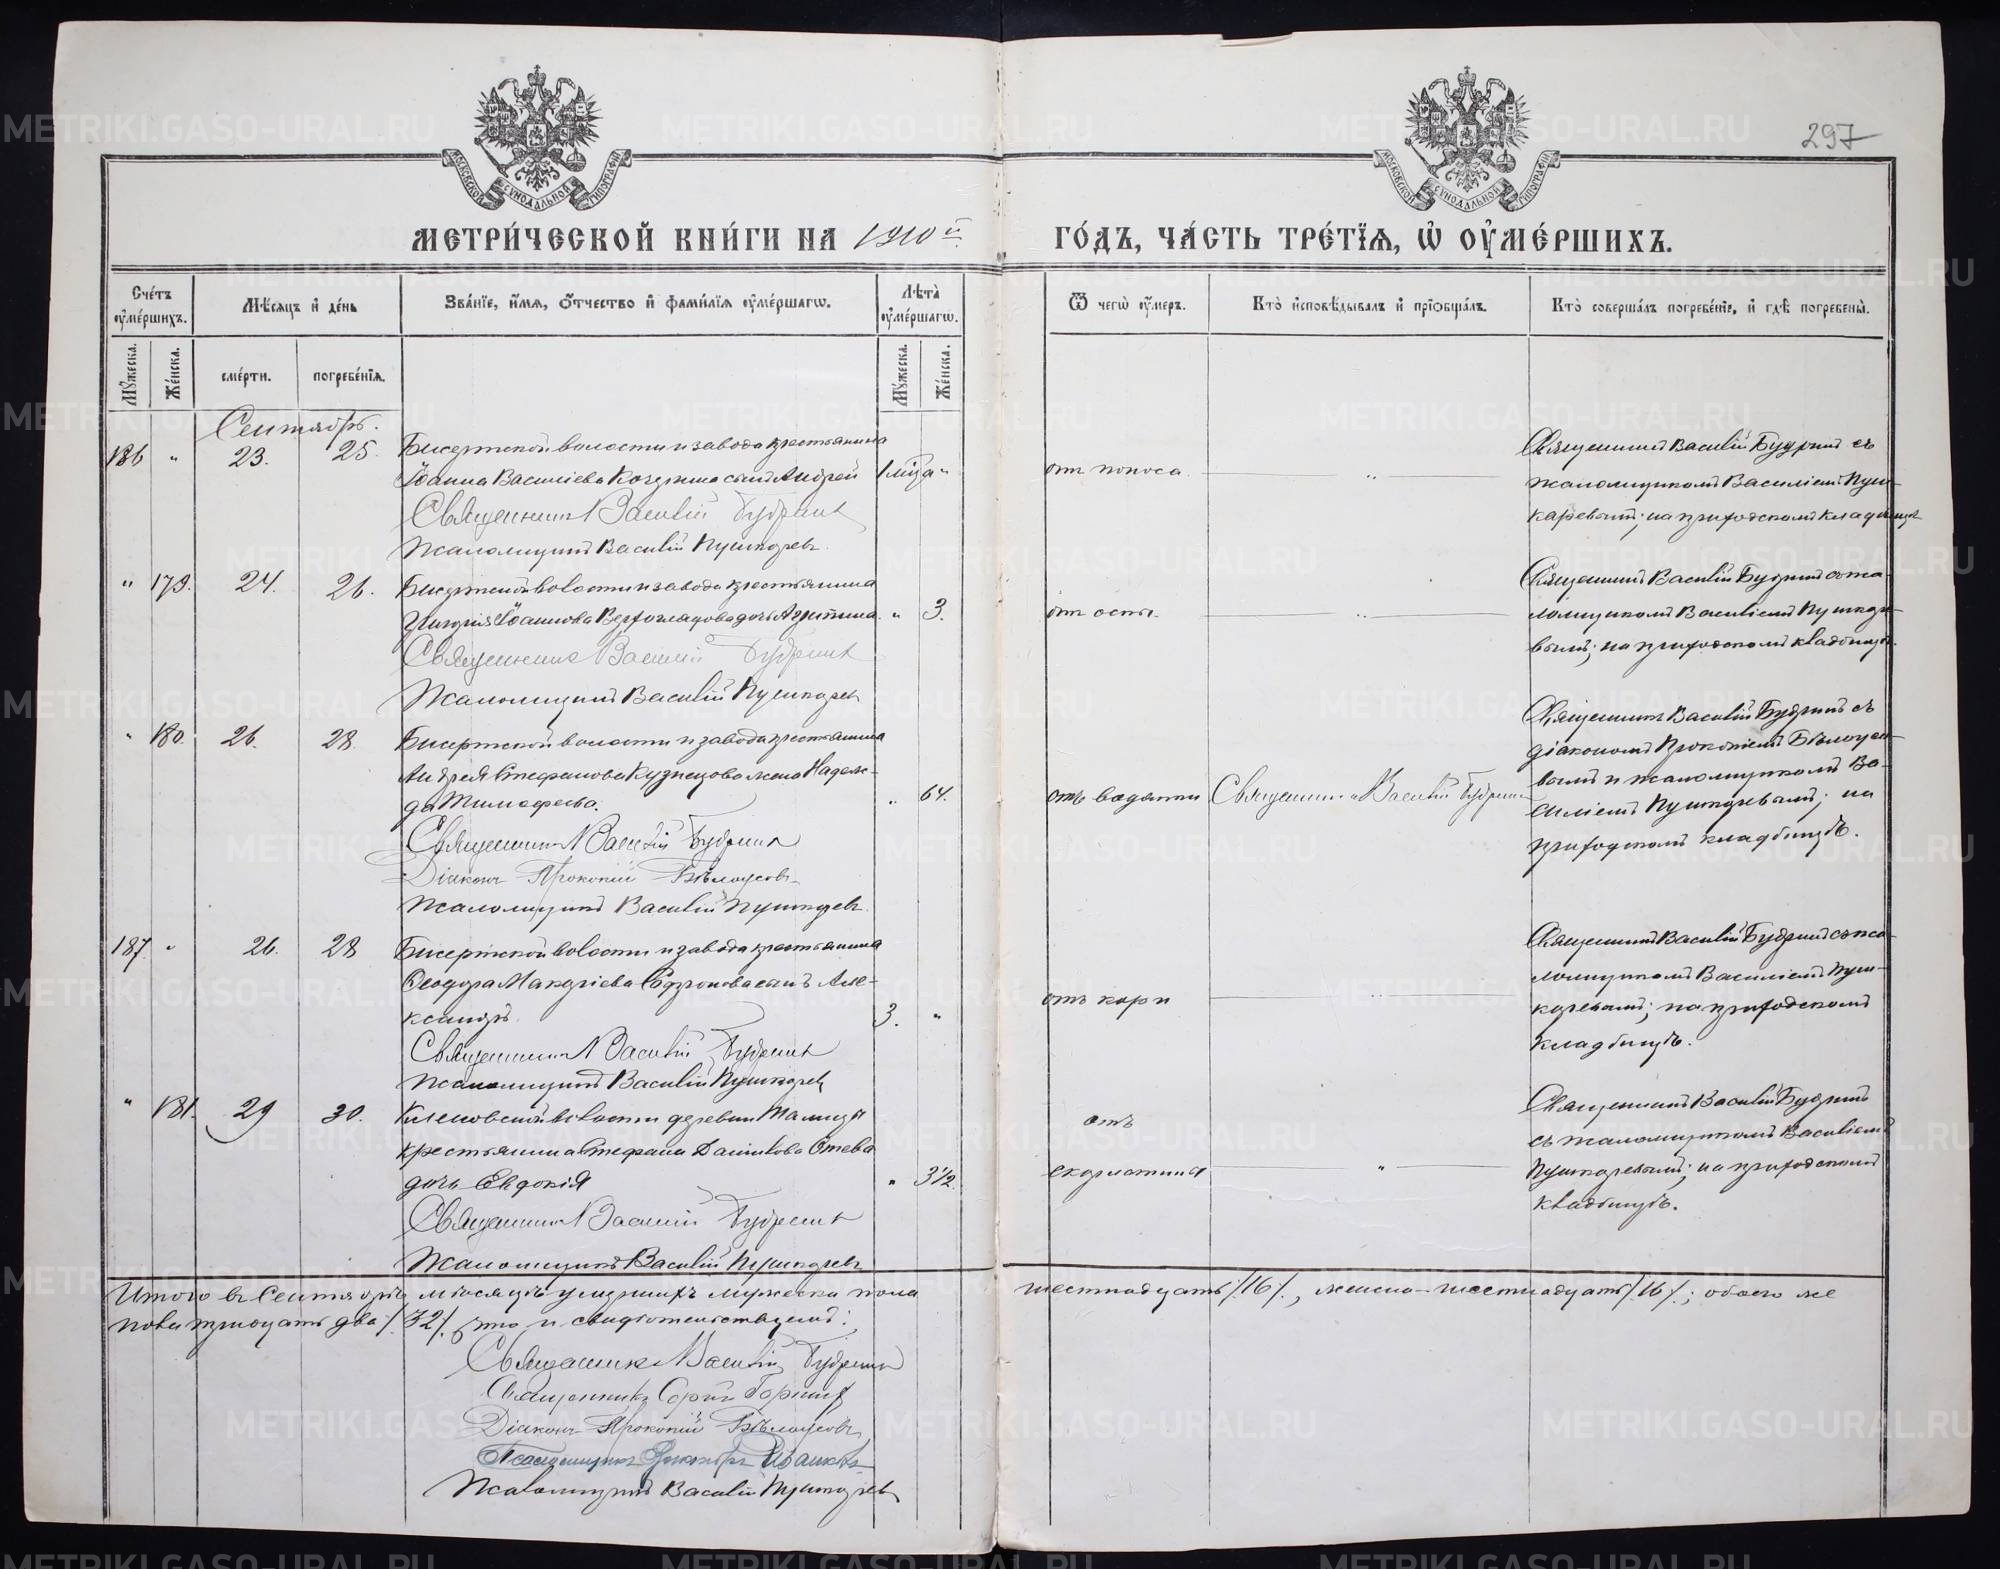 297
МОСКОВСКОЙ СѴНОДАЛЬНОЙ ТИПОГРАФІИ
МОСКОВСКОЙ СѴНОДАЛЬНОЙ ТИПОГРАФІИ
МЕТРИ́ЧЕСКОЙ КНИ́ГИ НА 1910й
ГО́ДЪ, ЧА́СТЬ ТРЕ́ТІѦ, Ѡ҆ ОУ҆МЕ́РШИХЪ.
Сче́тъ оу҆ме́ршихъ.
Мѣ́сѧцъ и҆ де́нь
Зва́нїе, и҆́мѧ, ѻ҆́тчество и҆ фамі́лїѧ оу҆ме́ршагѡ.
Лѣта̀ оу҆ме́ршагѡ.
Ѿ чегѡ̀ оу҆́меръ.
Кто̀ и҆сповѣ́дывалъ и҆ прїѡбща́лъ.
Кто̀ соверша́лъ погребе́нїе, и҆ гдѣ̀ погребены̀.
Мꙋ́жеска.
Же́нска.
сме́рти.
погребе́нїѧ.
Мꙋ́жеска.
Же́нска.
Сентябрь.
186 " 23. 25. Бисертской волости и завода крестьянина
Іоанна Василіева сынъ Андрей 1 года "
Священникъ Василій Будринъ
Псаломщикъ Василій Пушкаревъ.
от поноса "
Священникъ Василій Будринъ съ
псаломщикомъ Василіемъ Пуш-
каревымъ; на приходскомъ кладбищѣ
" 179. 24. 26. Бисертской волости и завода крестьянина
Іоаннова дочь " 3.
Священникъ Василій Будринъ
Псаломщикъ Василій Пушкаревъ
от оспы. "
Священникъ Василій Будринъ съ пса-
ломщикомъ Василіемъ Пушкаре-
вымъ; на приходскомъ кладбищѣ.
" 180. 26. 28. Бисертской волости и завода крестьянина
Андрея Стефанова Кузнецова жена Надеж-
да Тимофеева. " 64.
Священникъ Василій Будринъ
Діаконъ Прокопій Бѣлоусовъ
Псаломщикъ Василій Пушкаревъ.
отъ водянки Священникъ Василій Будринъ
Священникъ Василій Будринъ съ
діакономъ Прокопіемъ Бѣлоусо-
вымъ и псаломщикомъ Ва-
силіемъ Пушкаревымъ; на
приходскомъ кладбищѣ.
187. " 26. 28 Бисертской волости и завода крестьянина
Ѳеодора сынъ Але-
ксандръ. 3. "
Священникъ Василій Будринъ
Псаломщикъ Василій Пушкаревъ
отъ кори "
Священникъ Василій Будринъ съ пса-
ломщикомъ Василіемъ Пуш-
каревымъ; на приходскомъ
кладбищѣ.
" 181. 29 30. Кленовской волости деревни
крестьянина Стефана дочь Евдокія " 3 1/2.
Священникъ Василій Будринъ
Псаломщикъ Василій Пушкаревъ
отъ
скарлатины "
Священникъ Василій Будринъ
съ псаломщикомъ Василіемъ
Пушкаревымъ; на приходскомъ
кладбищѣ.
Итого въ Сентябрѣ мѣсяцѣ умершихъ мужеска пола
шестнадцать /16/, женска - шестнадцать /16/; обоего же
пола тридцать два /32/, что и свидѣтельствуемъ:
Священникъ Василій Будринъ
Священникъ
Діаконъ Прокопій Бѣлоусовъ
Псаломщикъ
Псаломщикъ Василій Пушкаревъ
METRIKI.GASO-URAL.RU